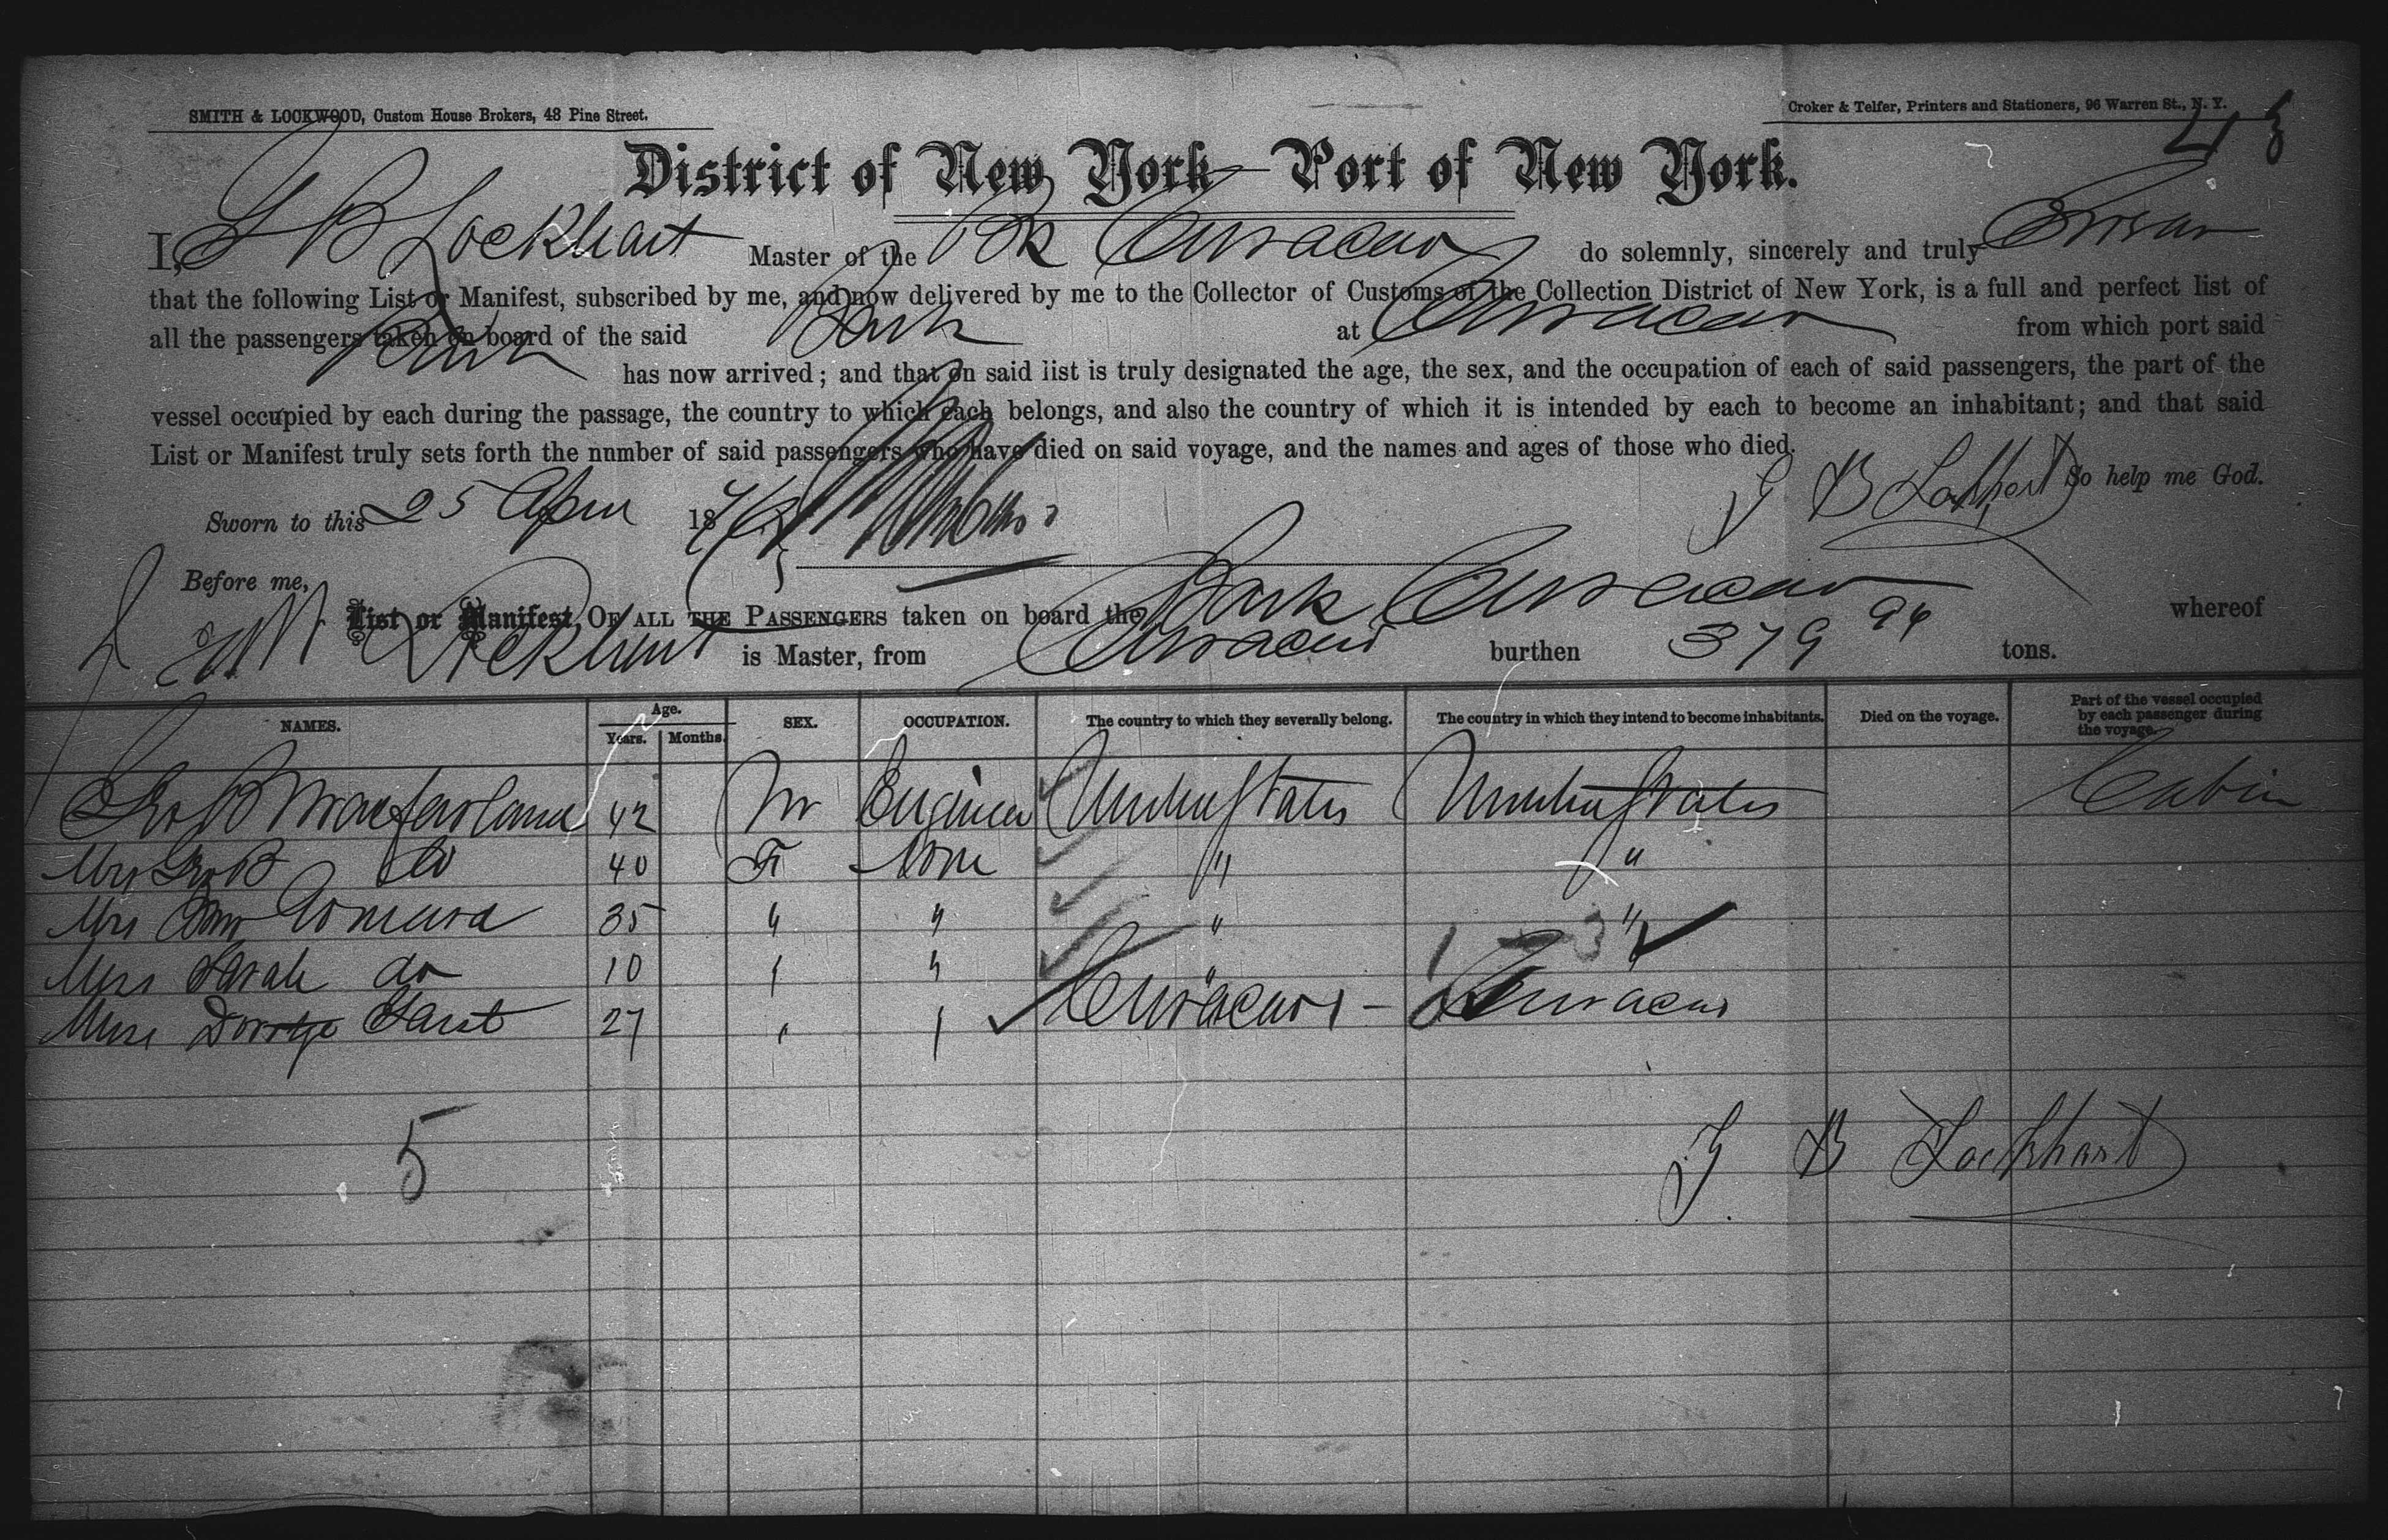 SMITH & LOCKWOOD, Custom House Brokers, 43 Pine Street.
Croker & Telfer, Printers and Stationers, 96 Warren St., N. Y.
District of New York Port of New York.
I, B Lockhart Master of the Bk Curacao do solemnly, sincerely and truly Swear
that the following List or Manifest, subscribed by me, and now delivered by me to the Collector of Customs of the Collection District of New York, is a full and perfect list of
all the passengers taken on board of the said Bark at Curacao from which port said
Bark has now arrived; and that on said list is truly designated the age, the sex, and the occupation of each of said passengers, the part of the
vessel occupied by each during the passage, the country to which each belongs, and also the country of which it is intended by each to become an inhabitant; and that said
List or Manifest truly sets forth the number of said passengers who have died on said voyage, and the names and ages of those who died.
B Lockhart So help me God.
Sworn to this 25 April 18
Before me,
List or Manifest, OF ALL THE PASSENGERS taken on board the Bark Curacao whereof
Lockhart is Master, from Curacao burthen 379 94 tons.
NAMES. Age. Years. Months. SEX. OCCUPATION. The country to which they severally belong. The country in which they intend to become inhabitants. Died on the voyage. Part of the vessel occupied by each passenger during the voyage.
Geo B Macfarland 42 M Engineer United States United States Cabin
Mrs Geo B do 40 F None " "
Mrs 35 " " " "
Miss Sarah do 10 " " " "
Miss 27 " " Curacao 1 - Curacao
5
B Lockhart